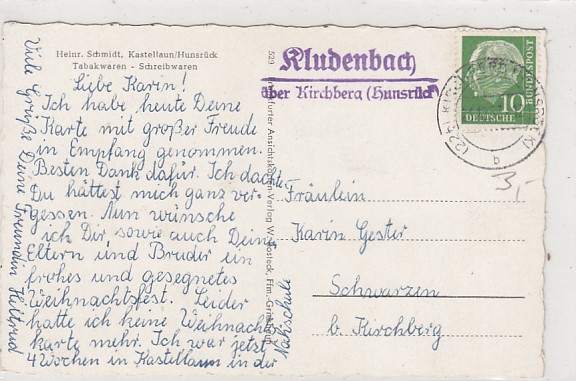 Heinr. Schmidt, Kastellaun/Hunsrück
Tabakwaren - Schreibwaren
Liebe Karin!
Ich habe heute Deine
Karte mit großer Freude
in Empfang genommen.
Besten Dank dafür. Ich dachte
Du hättest mich ganz ver-
gessen. Nun wünsche
ich Dir, sowie auch Deinen
Eltern und Bruder ein
frohes und gesegnetes
Weihnachtsfest. Leider
hatte ich keine Weihnachts
karte mehr. Ich war jetzt
4 Wochen in Kastellaun in der
Nähschule
Viele Grüße Deine Freundin Hiltrud
529 Frankfurter Ansichtskarten-Verlag W. Ffm.
Kludenbach
über Kirchberg (Hunsrück)
10
DEUTSCHE
BUNDESPOST
b
3,
Fräulein
Karin Gester
Schwarzen
b. Kirchberg